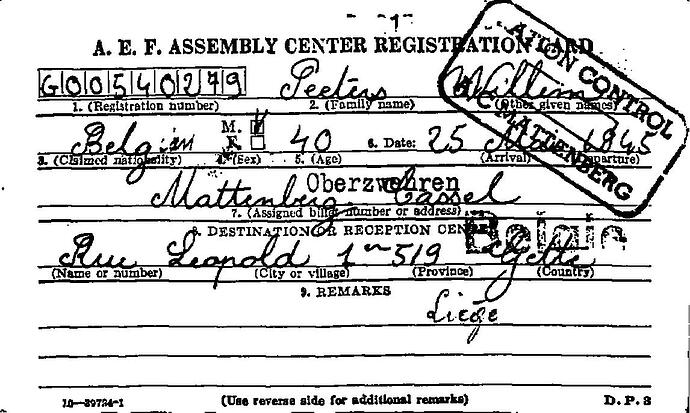 1
A. E. F. ASSEMBLY CENTER REGISTRATION CARD
G00540279 Peeters Willem
1. (Registration number) 2. (Family name) (Other given names)
ATION CONTROL
MATTENBERG
Belgian M. F. 40 6. Date: 25 1945
3. (Claimed nationality) 4. (Sex) 5. (Age) (Arrival) (Departure)
Oberzwehren
Mattenberg Cassel
7. (Assigned billet number or address)
8. DESTINATION OR RECEPTION CENTER
Belgie
Rue Leopold 1 519
(Name or number) (City or village) (Province) (Country)
9. REMARKS
Liége
16—39724-1 (Use reverse side for additional remarks) D.P. 2